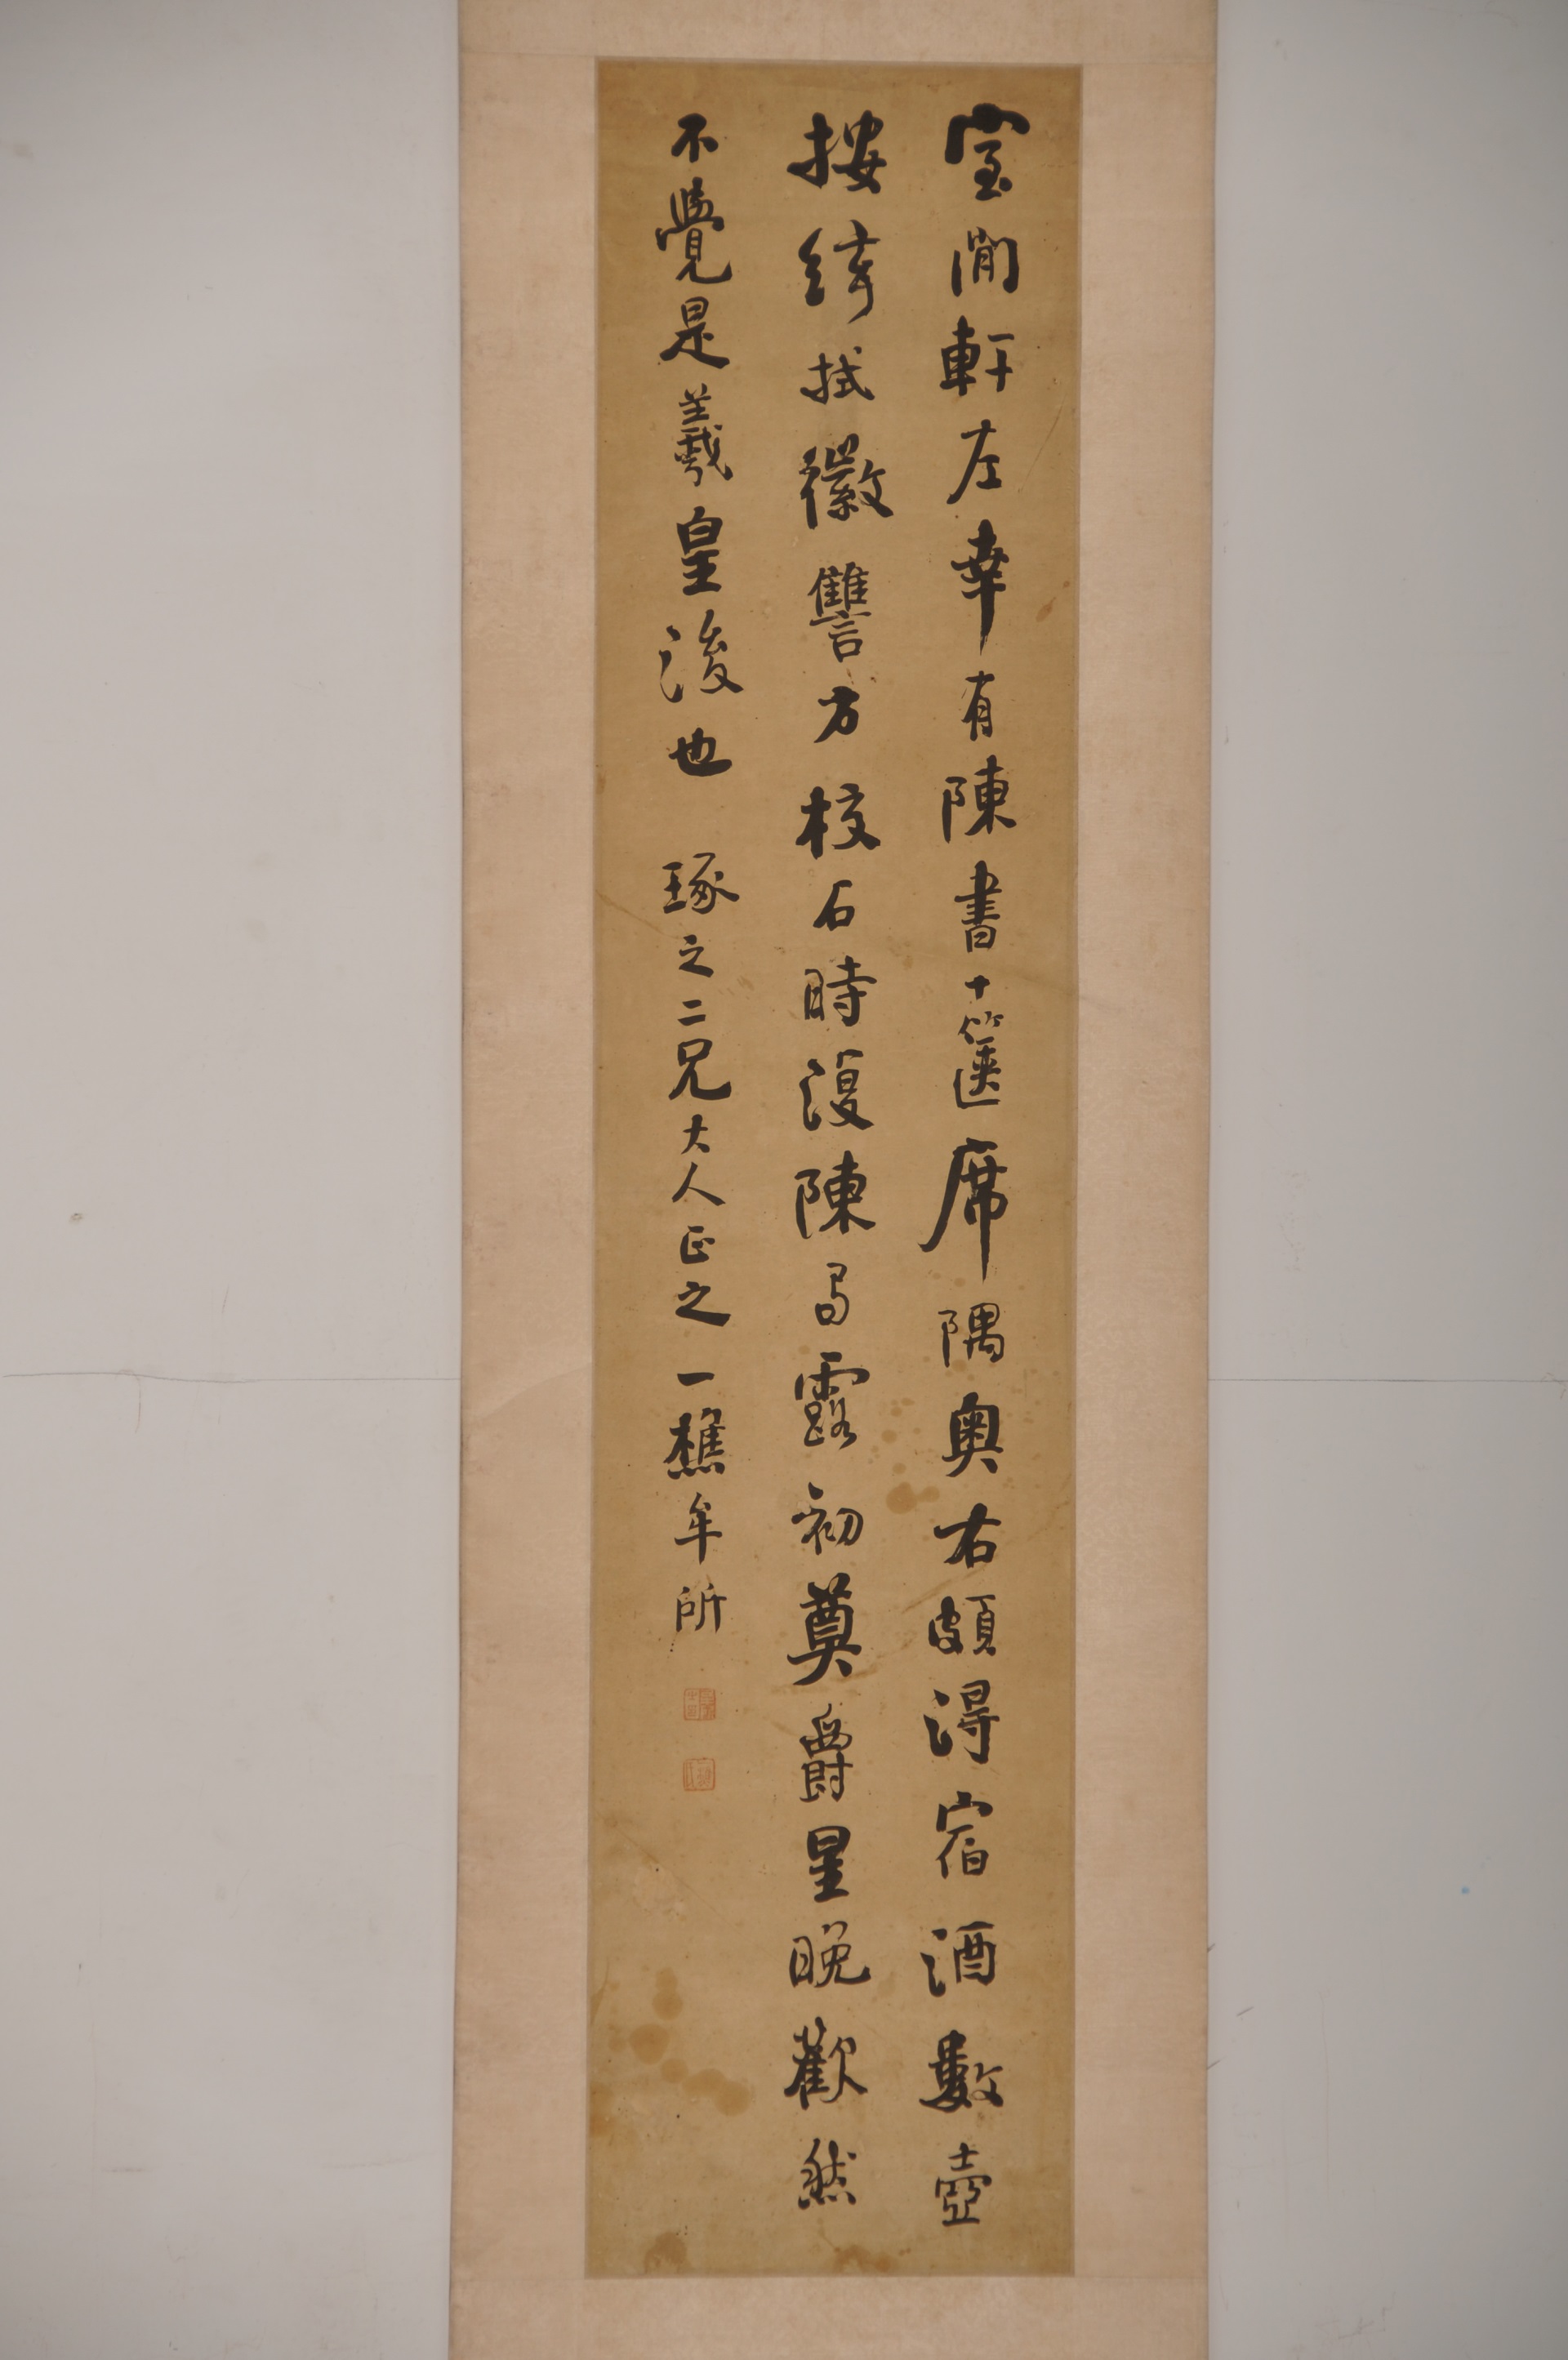 室閒軒左幸有陳書十篋席隅奧右頗得宿酒數壺
按絃拭徽讐方校石時復陳局露初奠爵星晚歡然
不覺是羲皇後也 琢之二兄大人正之 一樵牟所